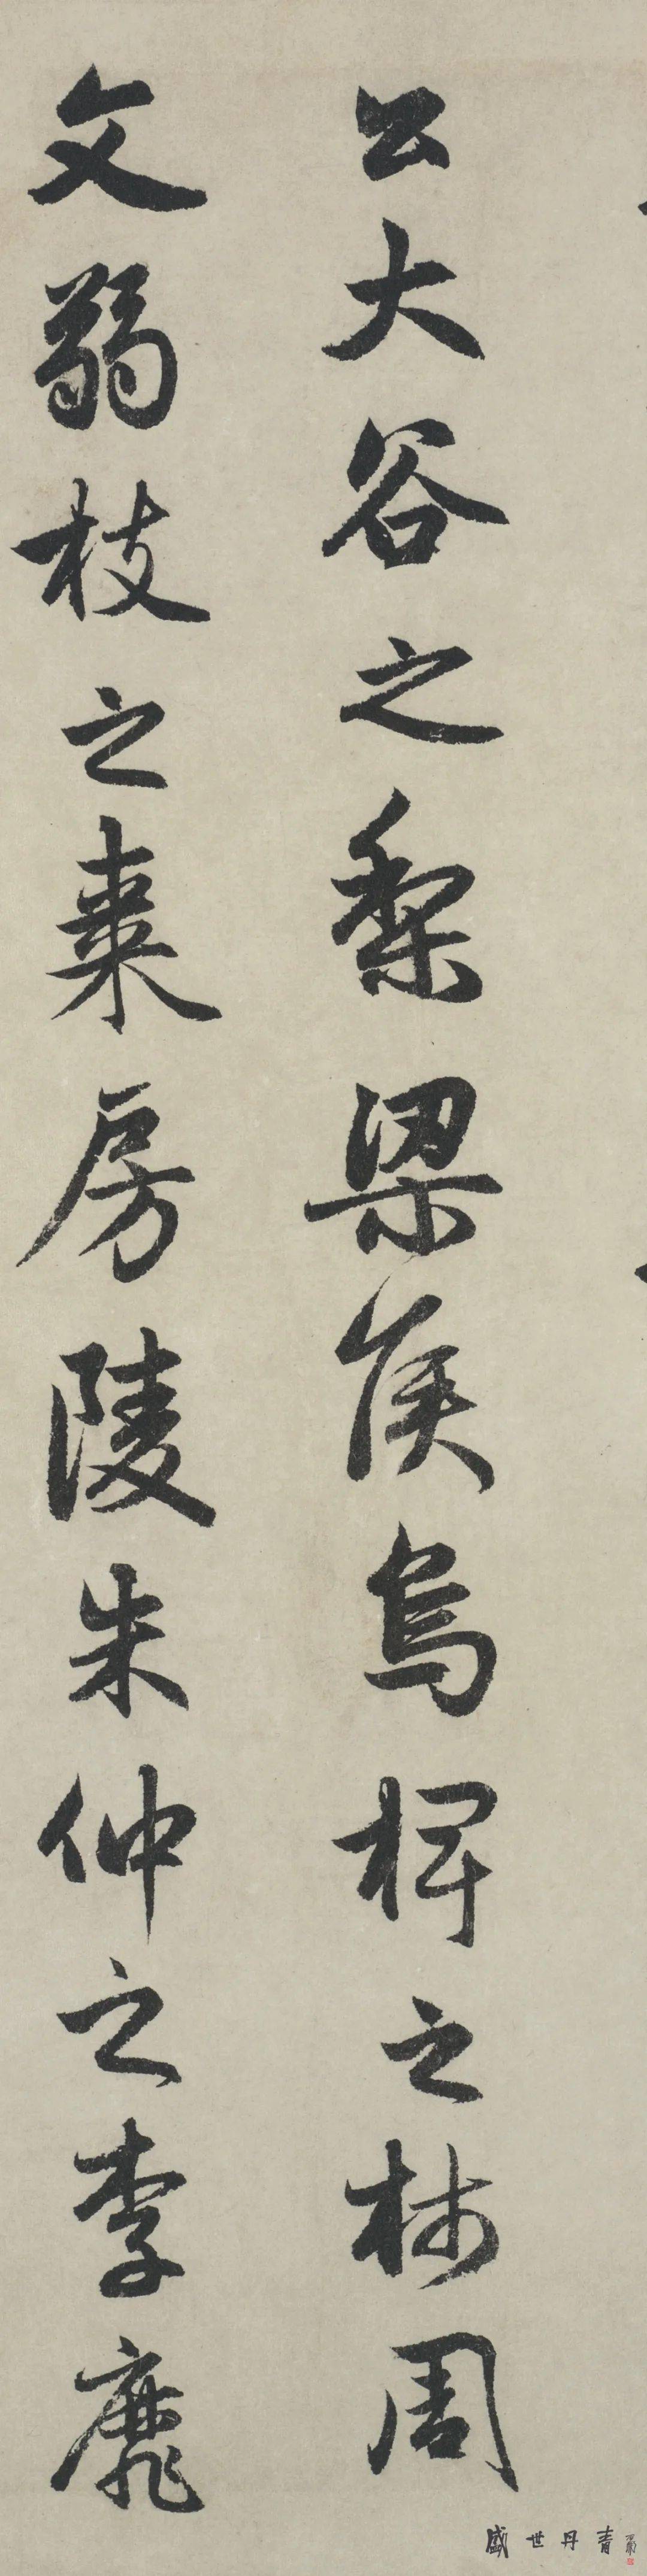 公大谷之梨梁侯烏椑之柿周
文弱枝之棗房陵朱仲之李靡
盛世丹青